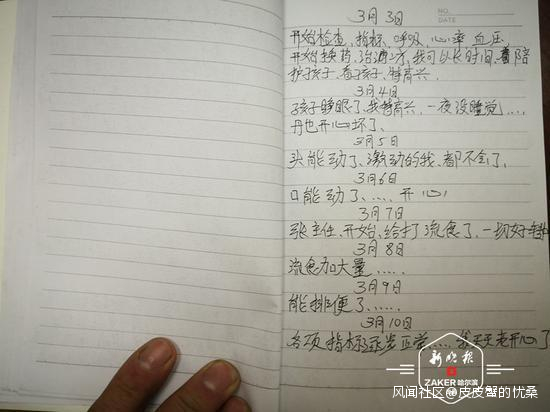 NO.
DATE
3月3日
开始检查、指标、呼吸、心率、血压
开始换药、治治疗,我可以长时间看陪
护孩子、看孩子、特高兴
3月4日
孩子睁眼了、我特高兴、一夜没睡觉.....
丹也开心坏了、
3月5日
头能动了、激动的我、都不会了、
3月6日
口能动了、....开心
3月7日
张主任、开始、给打流食了、一切好转
3月8日
流食加大量.....
3月9日
能排便了、.....
3月10日
各项指标逐步正常....我天天老开心了
新晚报
ZAKER哈尔滨
风闻社区@皮皮蟹的忧桑